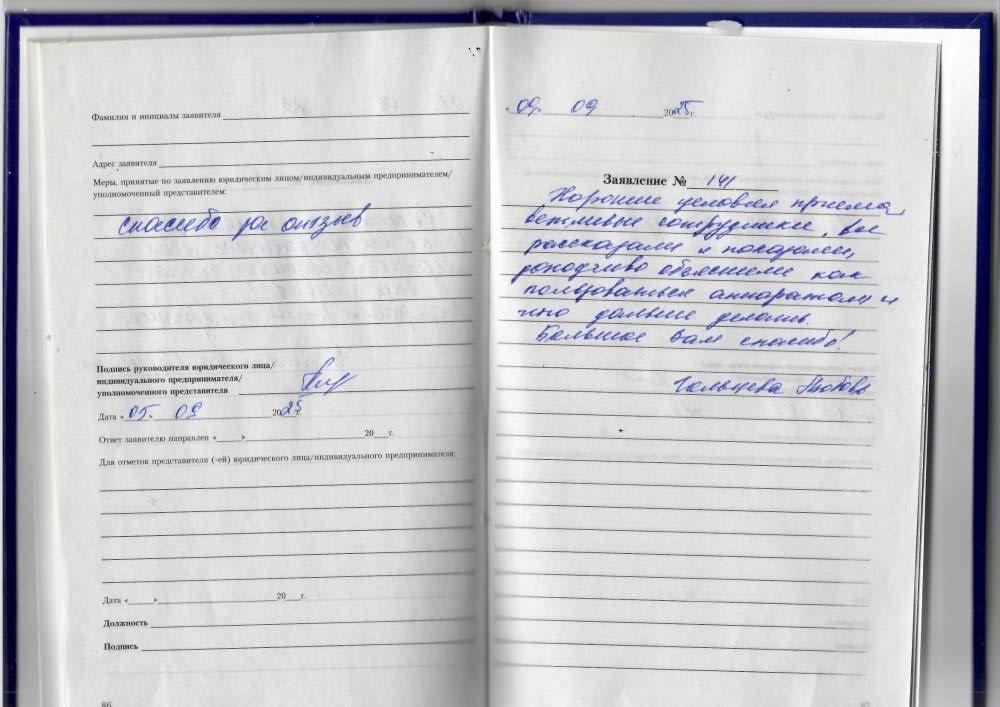 Фамилия и инициалы заявителя
Адрес заявителя
Меры, принятые по заявлению юридическим лицом/индивидуальным предпринимателем/
уполномоченный представителем:
спасибо за отзыв
Подпись руководителя юридического лица/
индивидуального предпринимателя/
уполномоченного представителя
Дата «05» 09 2025г.
Ответ заявителю направлен «    » 20 г.
Для отметок представители (-ей) юридического лица/индивидуального предпринимателя:
Дата «    » 20 г.
Должность
Подпись
86
«09 09 2025г.
Заявление № 141
Хорошие условия приема,
вежливые сотрудники, все
рассказали и показали,
доходчиво объяснили как
пользоваться аппаратом и
что дальше делать.
Большое вам спасибо!
Гольцева Любовь
87